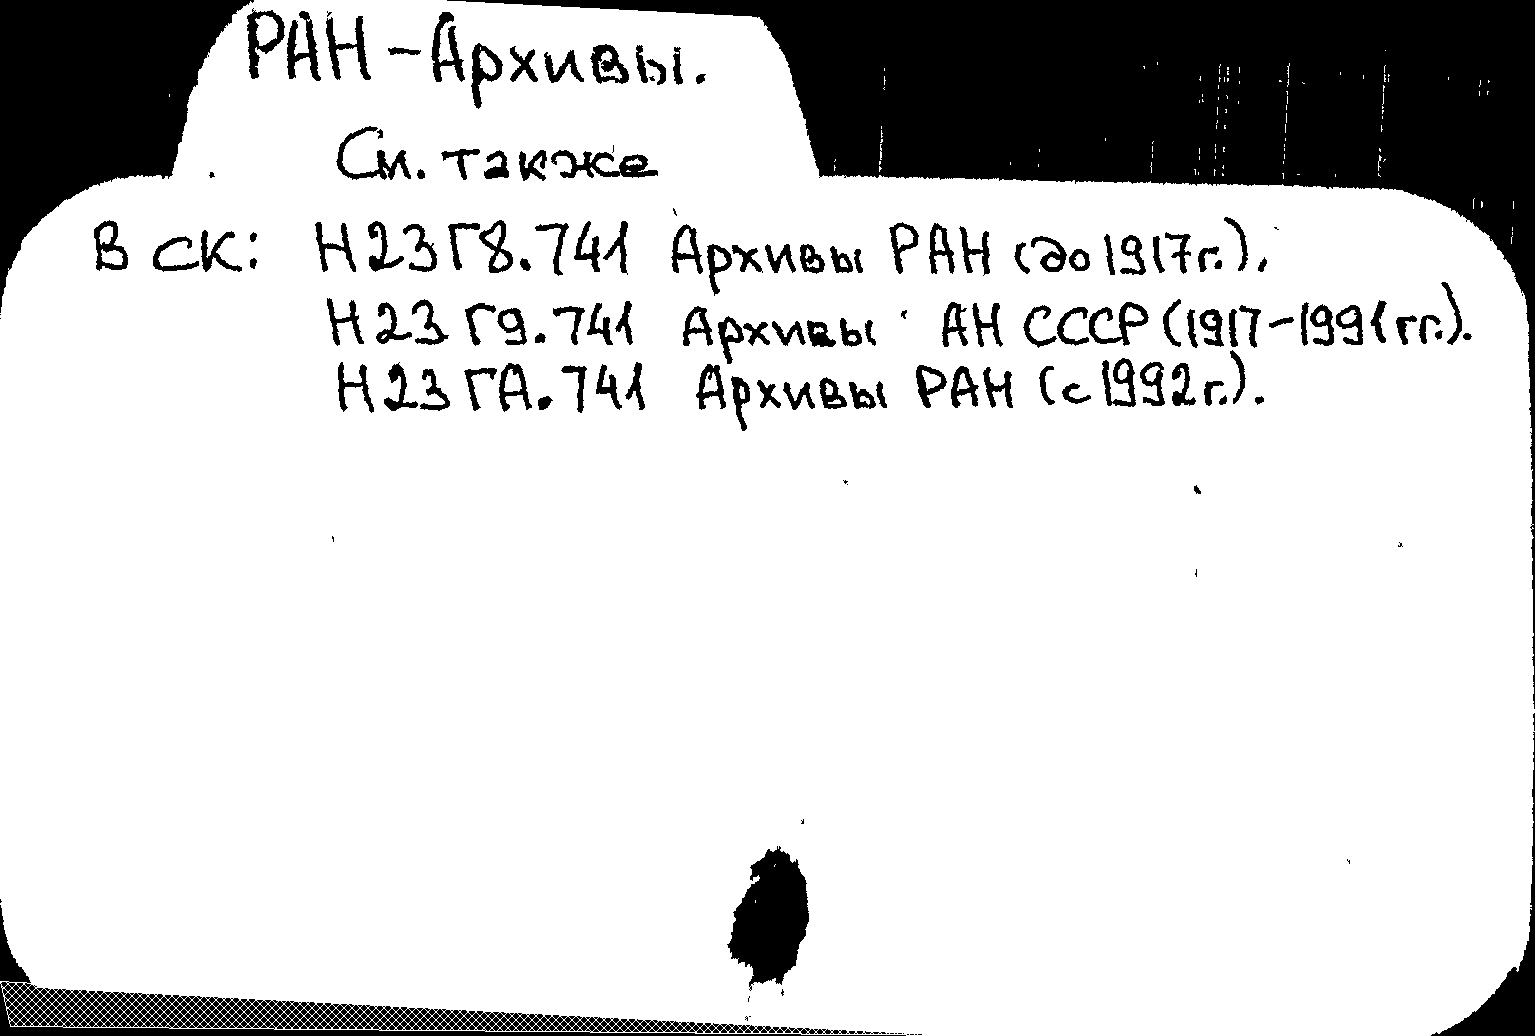 РАН - Архивы.
См. также
В СК: Н23Г8.741 Архивы РАН (до 1917г.).
Н23Г9.741 Архивы АН СССР (1917-1991гг.).
Н23ГА.741 Архивы РАН (с 1992г.).